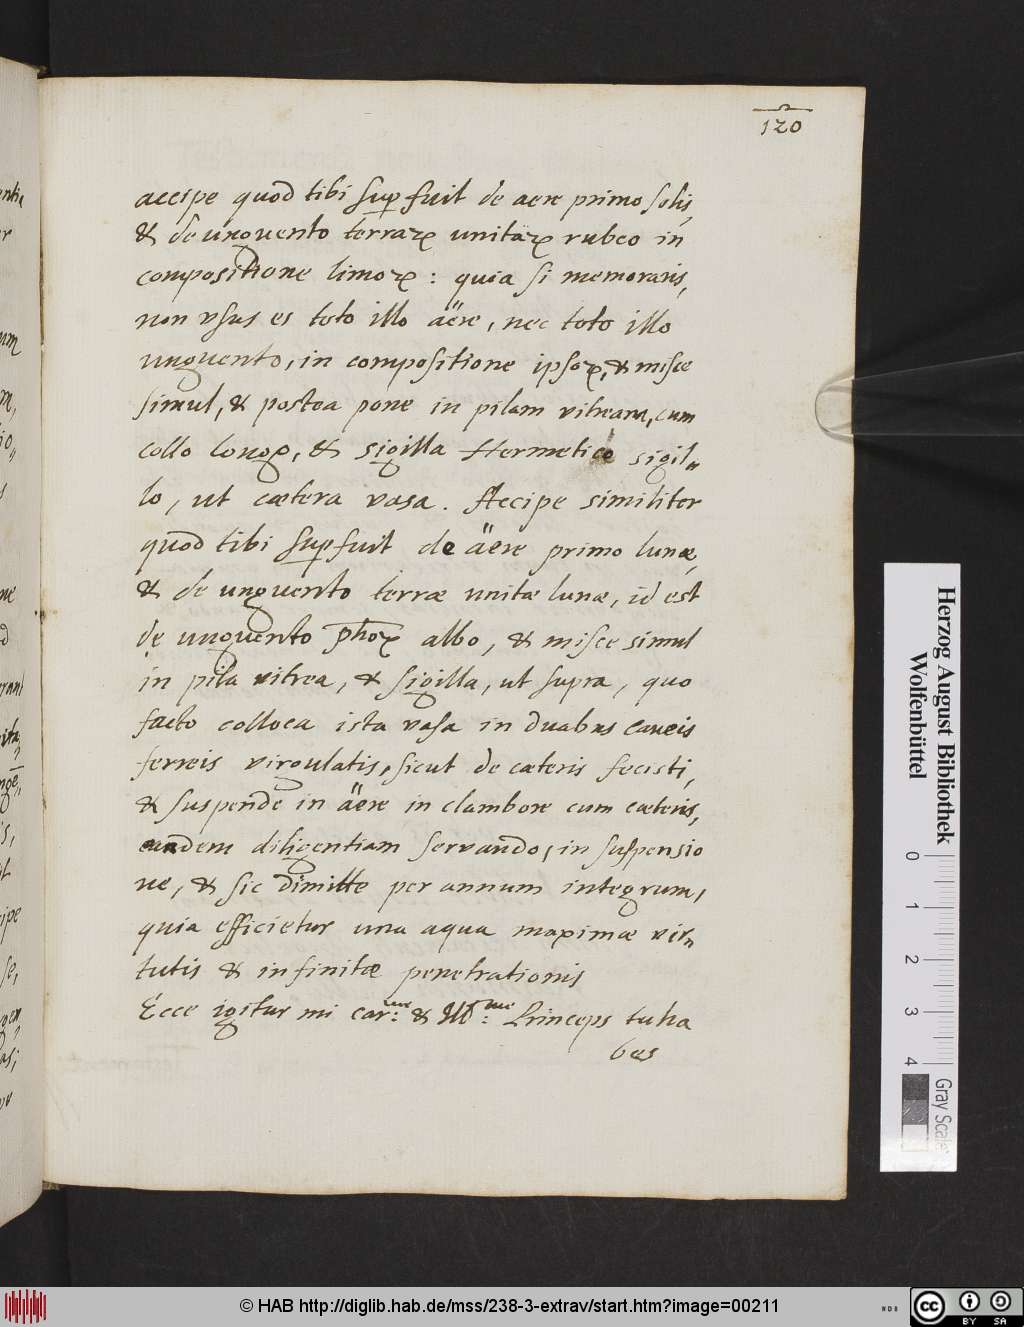 120
accipe quod tibi superfuit de aere primo solis,
& de unguento terraꝝ unitaꝝ rubeo in
compositione limoꝝ: quia si memoraris,
non usus es toto illo aëre, nec toto illo
unguento, in compositione ipsoꝝ, & misce
simul, & postea pone in pilam vitream, cum
collo longo, & sigilla Hermetico sigil„
lo, ut cætera vasa. Accipe similiter
quod tibi superfuit de aëre primo lunæ,
& de unguento terræ unitæ lunæ, id est
de unguento ph̄oꝝ albo, & misce simul
in pila vitrea, & sigilla, ut supra, quo
facto colloca ista vasa in duabus caveis
ferreis virgulatis, sicut de cæteris fecisti,
& suspende in aëre in clambore cum cæteris,
eandem diligentiam servando, in suspensio
ne, & sic dimitte per annum integrum,
quia efficietur una aqua maximæ vir„
tutis & infinitæ penetrationis
Ecce igitur mi car:me & Ill:me Princeps tu ha
bes
Herzog August Bibliothek
Wolfenbüttel
0 1 2 3 4
Gray Scale
© HAB http://diglib.hab.de/mss/238-3-extrav/start.htm?image=00211
cc BY SA